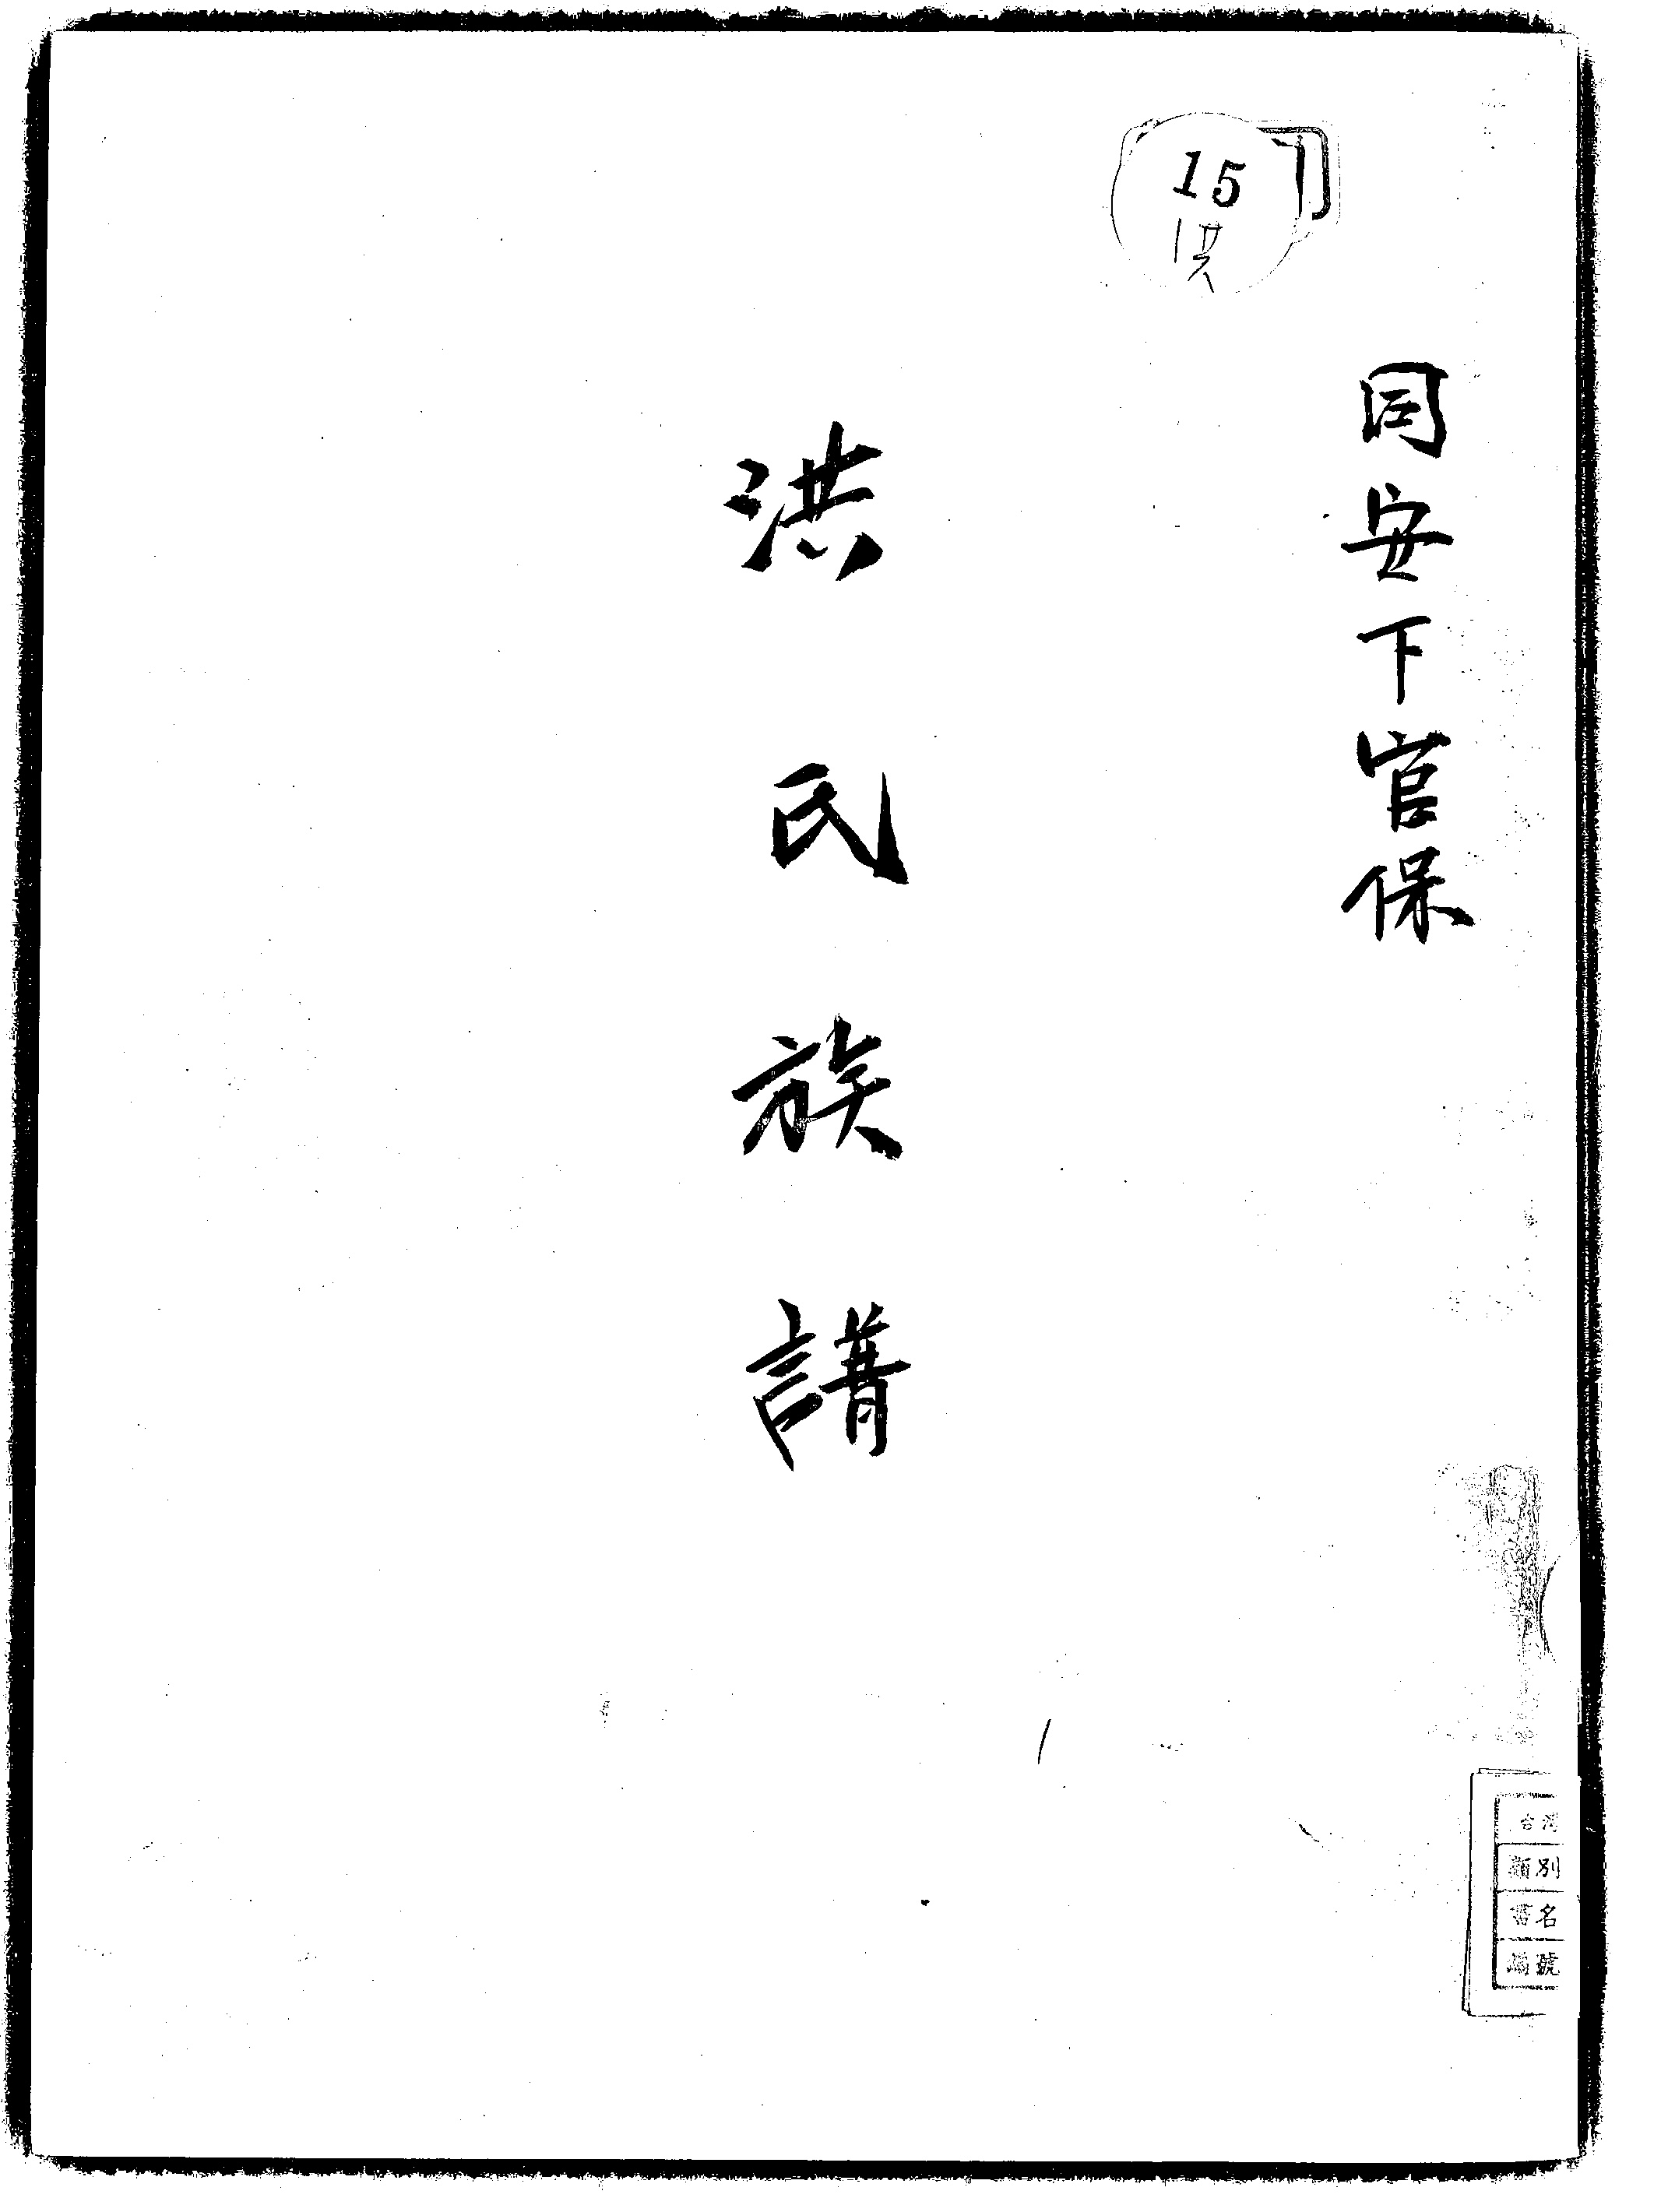 15
洪
同安下官保
洪氏族譜
台灣
類別
書名
編號